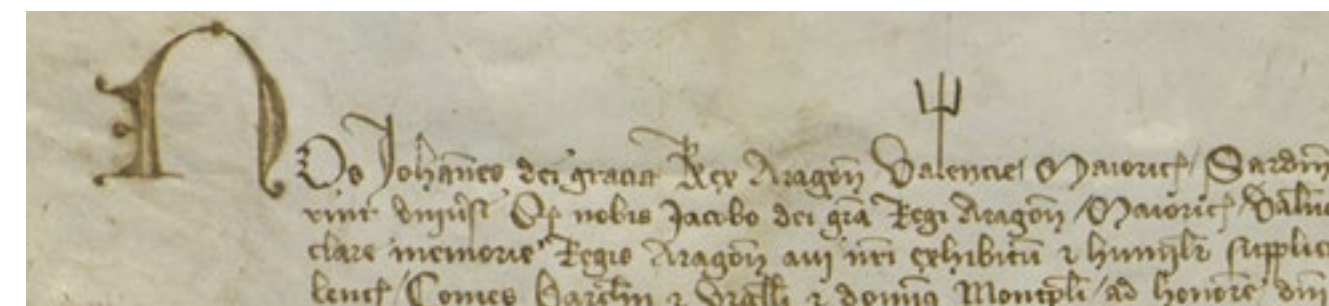 Nos Johannes dei gracia Rex Aragoñ Valencie Maioric Sardiñ
vnius nobis Jacobo dei gra Regi Aragoñ Maioric Valn
clare memorie Regis Aragoñ aui nri exhibitu z humil supplic
Comes z Vrgll z domin Montpli ad honore dni